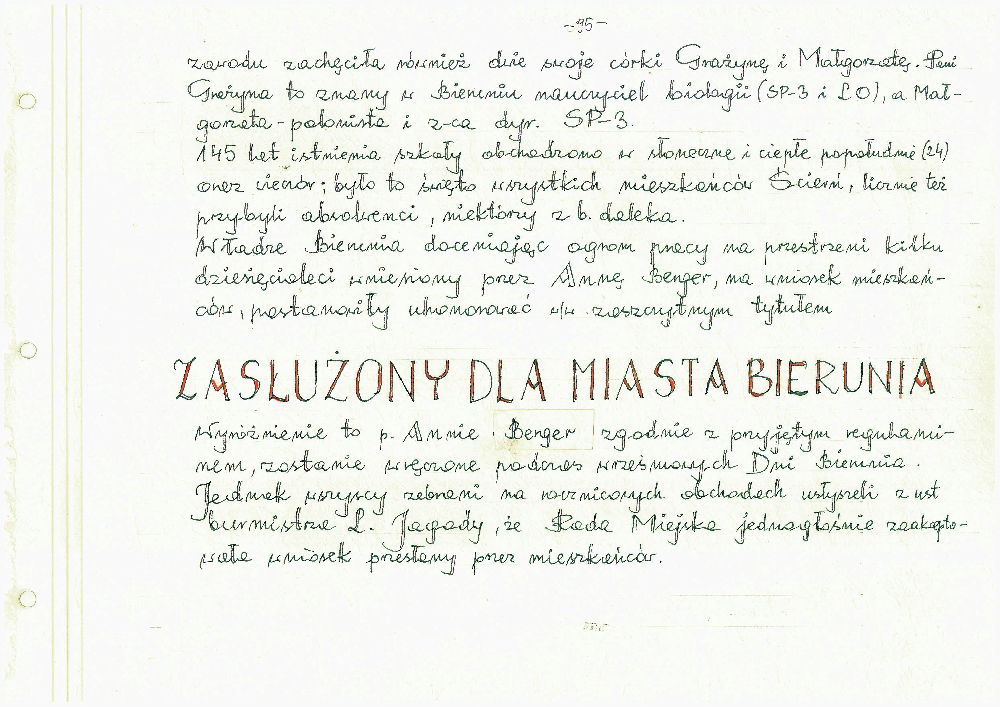 -95-
zawodu zachęciła również dwie swoje córki Grażynę i Małgorzatę. Pani
Grażyna to znany w Bieruniu nauczyciel biologii (SP-3 i LO), a Mał-
gorzata - polonista i z-ca dyr. SP-3.
145 lat istnienia szkoły obchodzono w słoneczne i ciepłe popołudnie (24)
oraz wieczór; było to święto wszystkich mieszkańców Ścierń, licznie też
przybyli absolwenci, niektórzy z b. daleka.
Władze Bierunia doceniając ogrom pracy na przestrzeni kilku
dziesięcioleci wniesiony przez Annę Benger, na wniosek mieszkań-
ców, postanowiły uhonorować w/w zaszczytnym tytułem
ZASŁUŻONY DLA MIASTA BIERUNIA
Wyróżnienie to p. Annie Benger zgodnie z przyjętym regulami-
nem, zostanie wręczone podczas wrześniowych Dni Bierunia.
Jednak wszyscy zebrani na rocznicowych obchodach usłyszeli z ust
burmistrza L. Jagody, że Rada Miejska jednogłośnie zaakcepto-
wała wniosek przesłany przez mieszkańców.